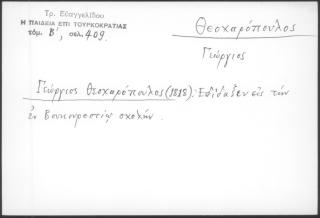 Τρ. Εὐαγγελίδου
Η ΠΑΙΔΕΙΑ ΕΠΙ ΤΟΥΡΚΟΚΡΑΤΙΑΣ
τόμ. Β', σελ. 409.
Θεοχαρόπουλος
Γεώργιος
Γεώργιος Θεοχαρόπουλος (1818). Ἐδίδαξεν εἰς τὴν
ἐν Βουκουρεστίῳ σχολήν.